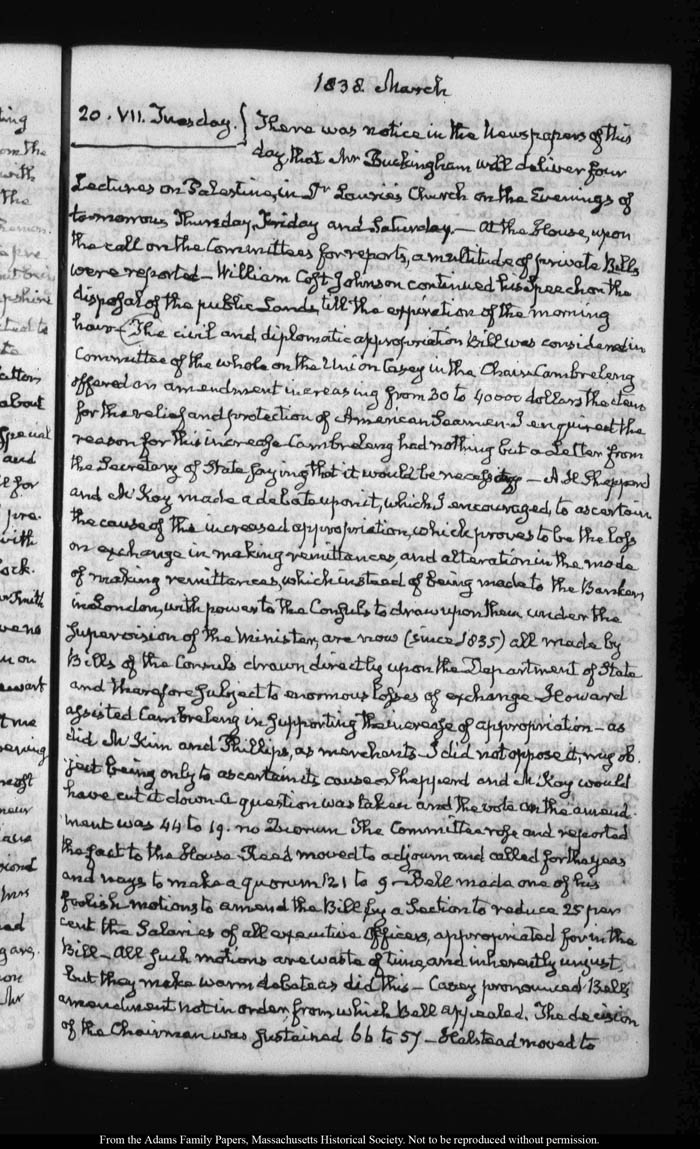 1838. March
20. VII. Tuesday. There was notice in the Newspapers of this
day, that Mr Buckingham will deliver four
Lectures on Palestine, in Dr Laurie's Church on the Evenings of
tomorrow, Thursday, Friday and Saturday. — At the House, upon
the call on the Committees for reports, a multitude of private Bills
were reported — William Cost Johnson continued his Speech on the
disposal of the public Lands, till the expiration of the morning
hour — The civil and diplomatic appropriation Bill was considered in
Committee of the whole on the Union Casey in the Chair. Cambreleng
offered an amendment increasing from 30 to 40000 dollars the item
for the relief and protection of American Seamen. I enquired the
reason for this increase Cambreleng had nothing but a Letter from
the Secretary of State saying that it would be necessary — A H Shepperd
and McKay made a debate upon it, which I encouraged, to ascertain
the cause of this increased appropriation, which proves to be the loss
on exchange in making remittances, and alteration in the mode
of making remittances, which instead of being made to the Bankers
in London, with power to the Consuls to draw upon them, under the
Supervision of the Minister, are now (since 1835) all made by
Bills of the Consuls drawn directly upon the Department of State
and therefore subject to enormous losses of exchange Howard
assisted Cambreleng in supporting the increase of appropriation — as
did McKim and Phillips, as merchants — I did not oppose it, my ob-
ject being only to ascertain its cause Shepperd and McKay would
have cut it down A question was taken and the vote on the amend-
ment was 44 to 19. no Quorum The Committee rose and reported
the fact to the House Reed moved to adjourn and called for the yeas
and nays to make a quorum 121 to 9 — Bell made one of his
foolish motions to amend the Bill by a Section to reduce 25 per
cent the Salaries of all executive Officers, appropriated for in the
Bill — All such motions are waste of time, and inherently unjust,
but they make warm debate as did this — Casey pronounced Bell's
amendment not in order, from which Bell appealed. The decision
of the Chairman was sustained 66 to 57 — Halstead moved to
From the Adams Family Papers, Massachusetts Historical Society. Not to be reproduced without permission.